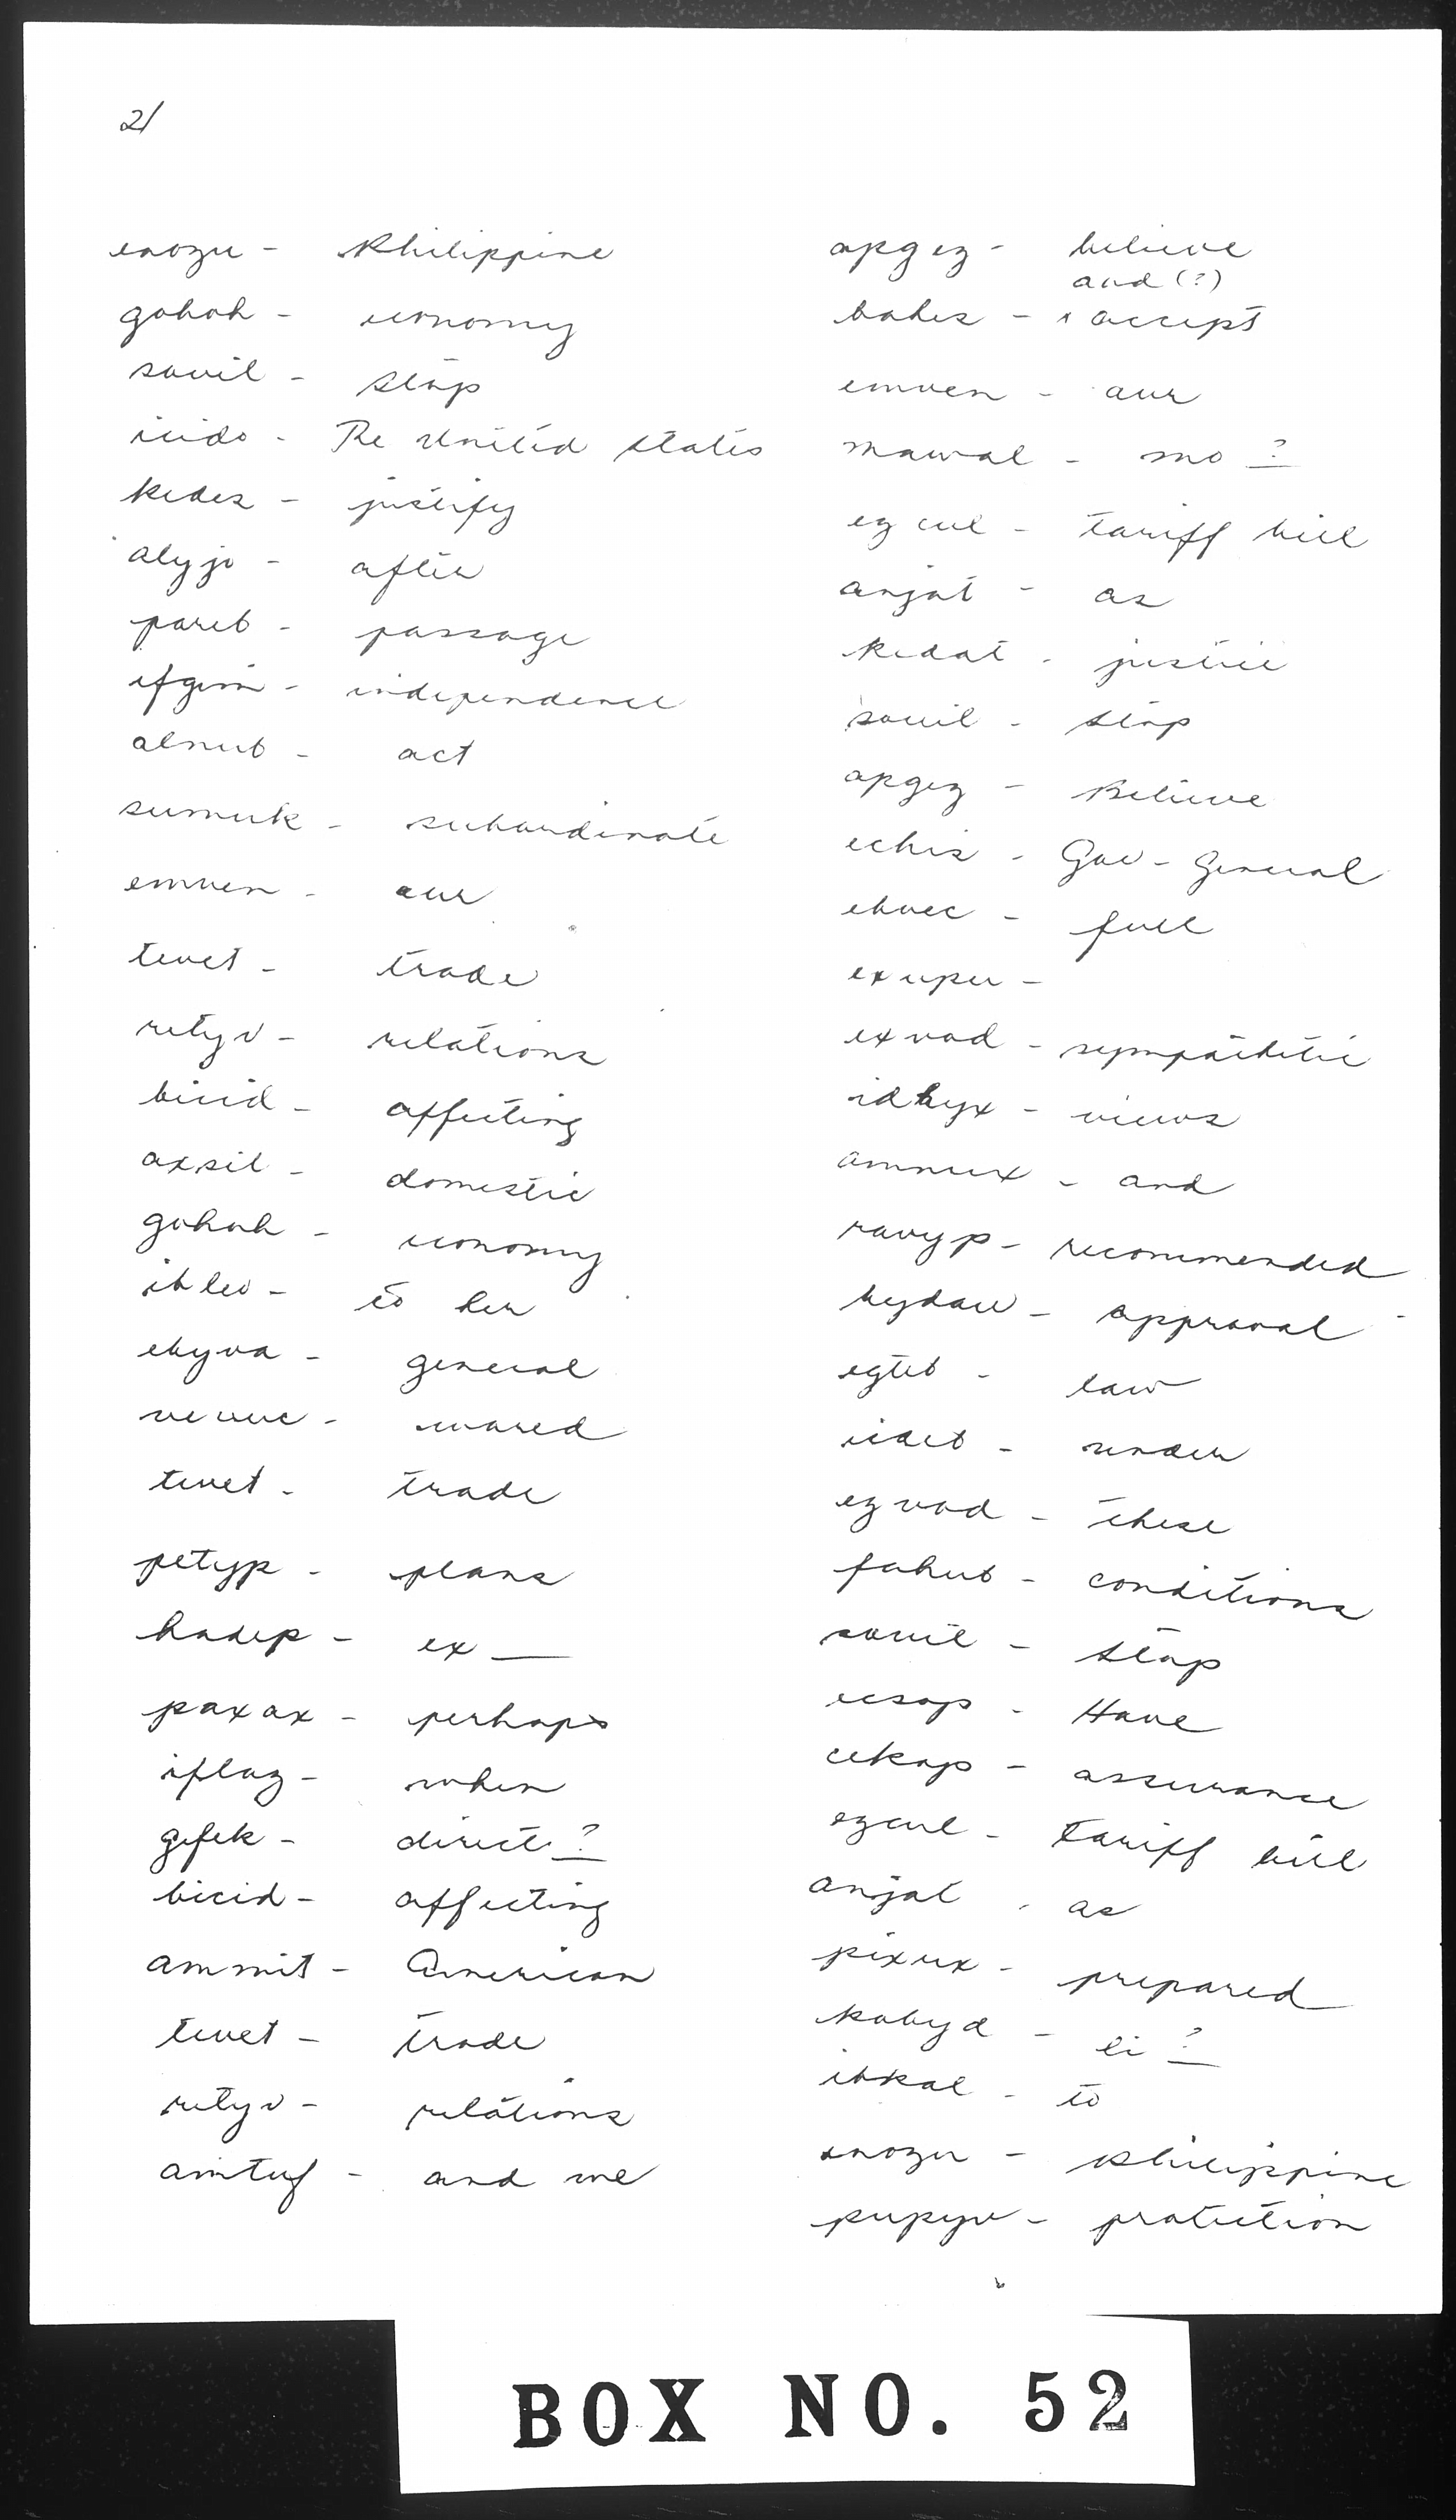 2/
enozu - Philippine
gohoh - economy
souil - stop
icido - The United States
kedez - justify
alyjo - after
pareb - passage
efgim - independence
alnub - act
sumuk - subordinate
emven - our
tevet - trade
retyv - relations
bicid - affecting
axsil - domestic
gohoh - economy
iblev - to her
ebyva - general
trade
tevet - trade
petyp - plans
hadep - ex __
paxax - perhaps
iflaz - when
gefek - direct ?
bicid - affecting
ammit - American
tevet - trade
retyv - relations
amtuf - and we
apgez - believe
and (?)
bahes - ^ accept
emven - our
mawal - mo ?
ezcul - tariff bill
anjat - as
kedat - justice
souil - stop
apgez - Believe
echis - Gov - General
ebvec - full
exupu -
exvod - sympathetic
idbyx - views
ammux - and
ravyp - recommended
bydaw - approval
egteb - law
icdeb - under
ezvod - these
fohub - conditions
souil - stop
ecsop - Have
cekap - assurance
ezcul - tariff bill
anjat - as
pixux - prepared
kobyd - li ?
ibkal - to
enozu - Philippine
pupyv - protection
BOX NO. 52